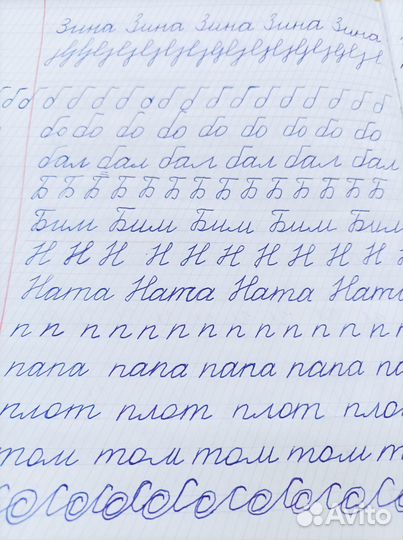 Зина Зина Зина Зина Зина
б б б б б б б б б б б б б б б б б
бо бо бо бо бо бо бо бо
бал бал бал бал бал бал
Б Б Б Б Б Б Б Б Б Б Б Б Б
Бим Бим Бим Бим Бим
Н Н Н Н Н Н Н Н Н Н
Ната Ната Ната Ната
п п п п п п п п п п п п п п
папа папа папа папа па
плот плот плот пло
том том том том т
Avito